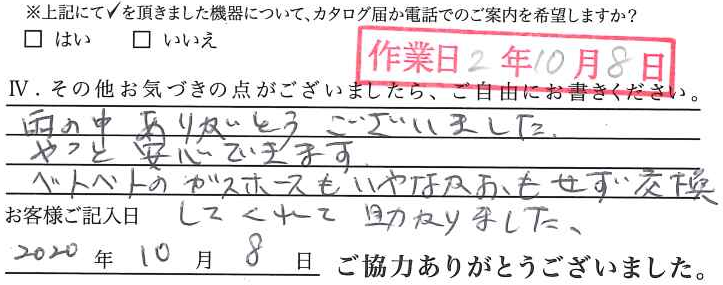 ※上記にて✓を頂きました機器について、カタログ届か電話でのご案内を希望しますか？
□ はい □ いいえ
作業日 2 年 10 月 8 日
Ⅳ．その他お気づきの点がございましたら、ご自由にお書きください。
雨の中 ありがとう ございました。
やっと 安心できます。
ベトベトの ガスホースも いやなかおもせず 交換
お客様ご記入日 してくれて 助かりました、
2020 年 10 月 8 日 ご協力ありがとうございました。